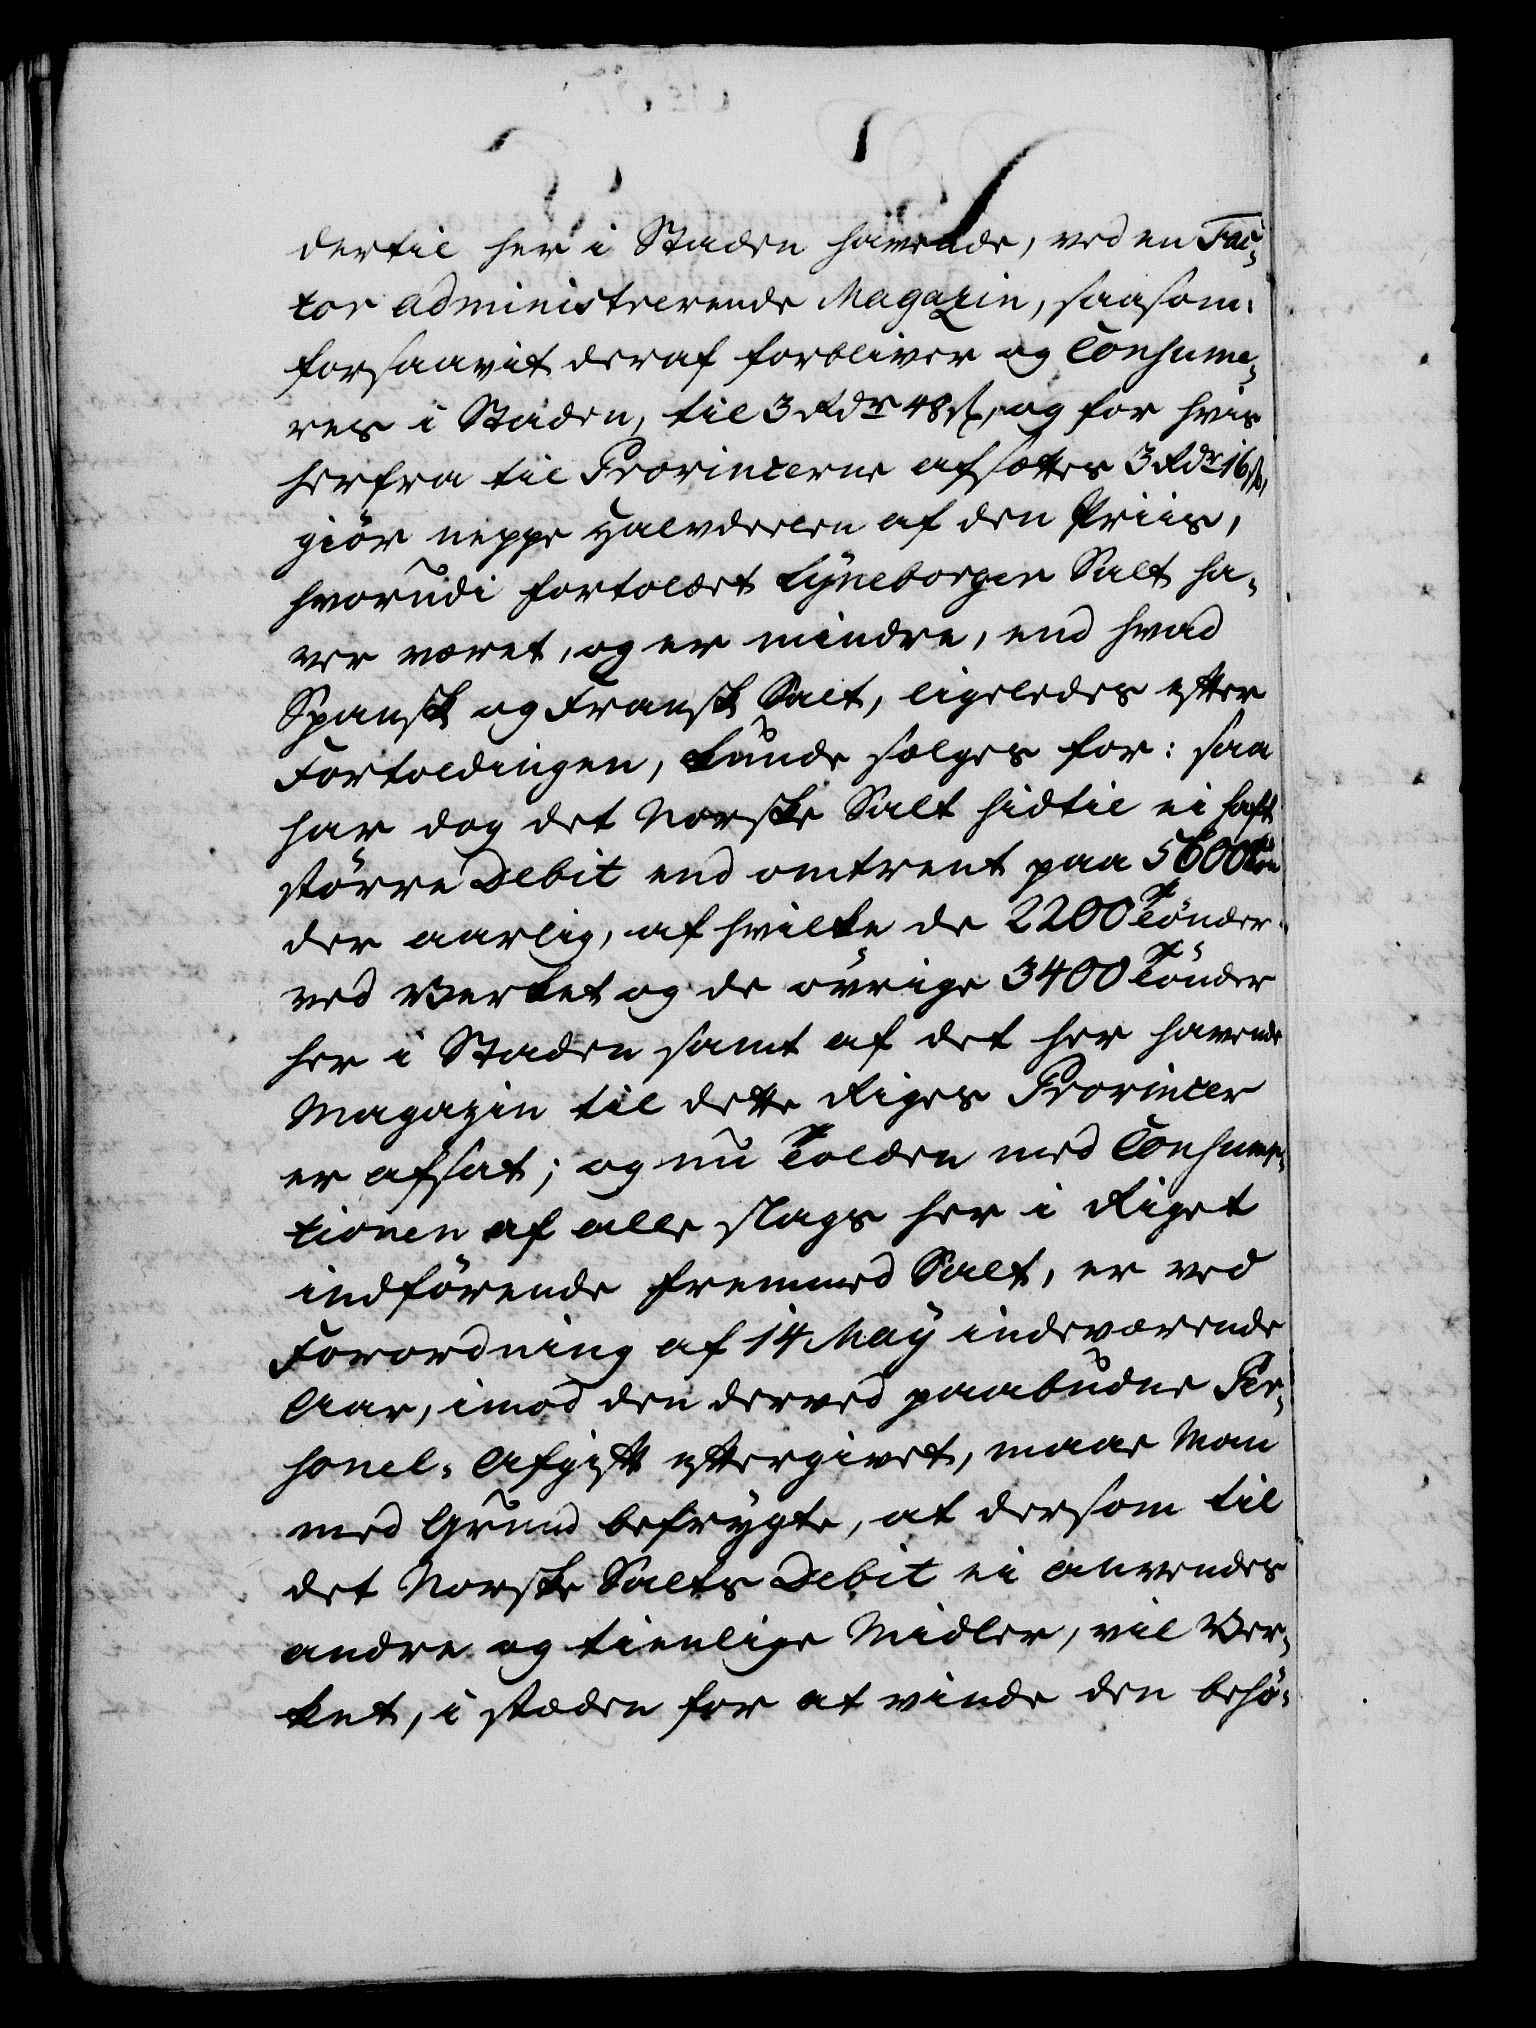 dertil her i Staden havende, ved en Fac-
tor administrerende Magazin, saasom:
forsaavit deraf forbliver og Consume-
res i Staden, til 3 Rdr 48 ß, og for hvis
herfra til Provincerne afsættes 3 Rdr 16 ß,
giör neppe Halvdeelen af den Priis,
hvorudi fortoldet Lÿneborger Salt ha-
ver været, og er mindre, end hvad
Spansk og Fransk Salt, ligeledes efter
Fortoldingen, kunde sælges for: saa
har dog det Norske Salt hidtil ei haft
större Debit end omtrent paa 5600 Tön
der aarlig, af hvilke de 2200 Tönder
ved Verket og de övrige 3400 Tönder
her i Staden samt af det her havende
Magazin til dette Riges Provincer
er afsat; og nu Tolden med Consump-
tionen af alle slags her i Riget
indförende fremmed Salt, er ved
Forordning af 14 Maÿ indeværende
Aar, imod den derved paabudne Per-
sonel-Afgift eftergivet, maae Man
med Grund befrygte, at dersom til
det Norske Salts Debit ei anvendes
andre og tienlige Midler, vil Ver-
ket, i stæden for at vinde den behö-